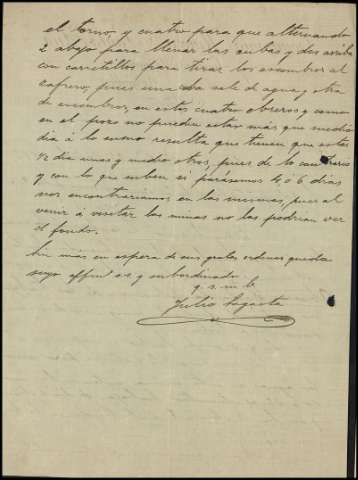 el torno, y cuatro para que alternando
2 abajo para llenar las cubas y dos arriba
con carretillos para tirar los escombros al
cafrero, pues una cuba sale de agua y otra
de escombros, en estos cuatro obreros y como
en el pozo no pueden estar mas que medio
dia á lo sumo resulta que tienen que estar
½ dia unos y medio otros, pues de lo contrario
y con lo que suben si parasemos 4 ó 6 dias
nos encontrariamos en las mismas, pues al
venir a visitar las minas no las podrian ver
el fondo.
Sin mas en espera de sus gratas ordenes queda
suyo affmo s.s. y subordinado
q. s. m. b.
Julio Lagasta